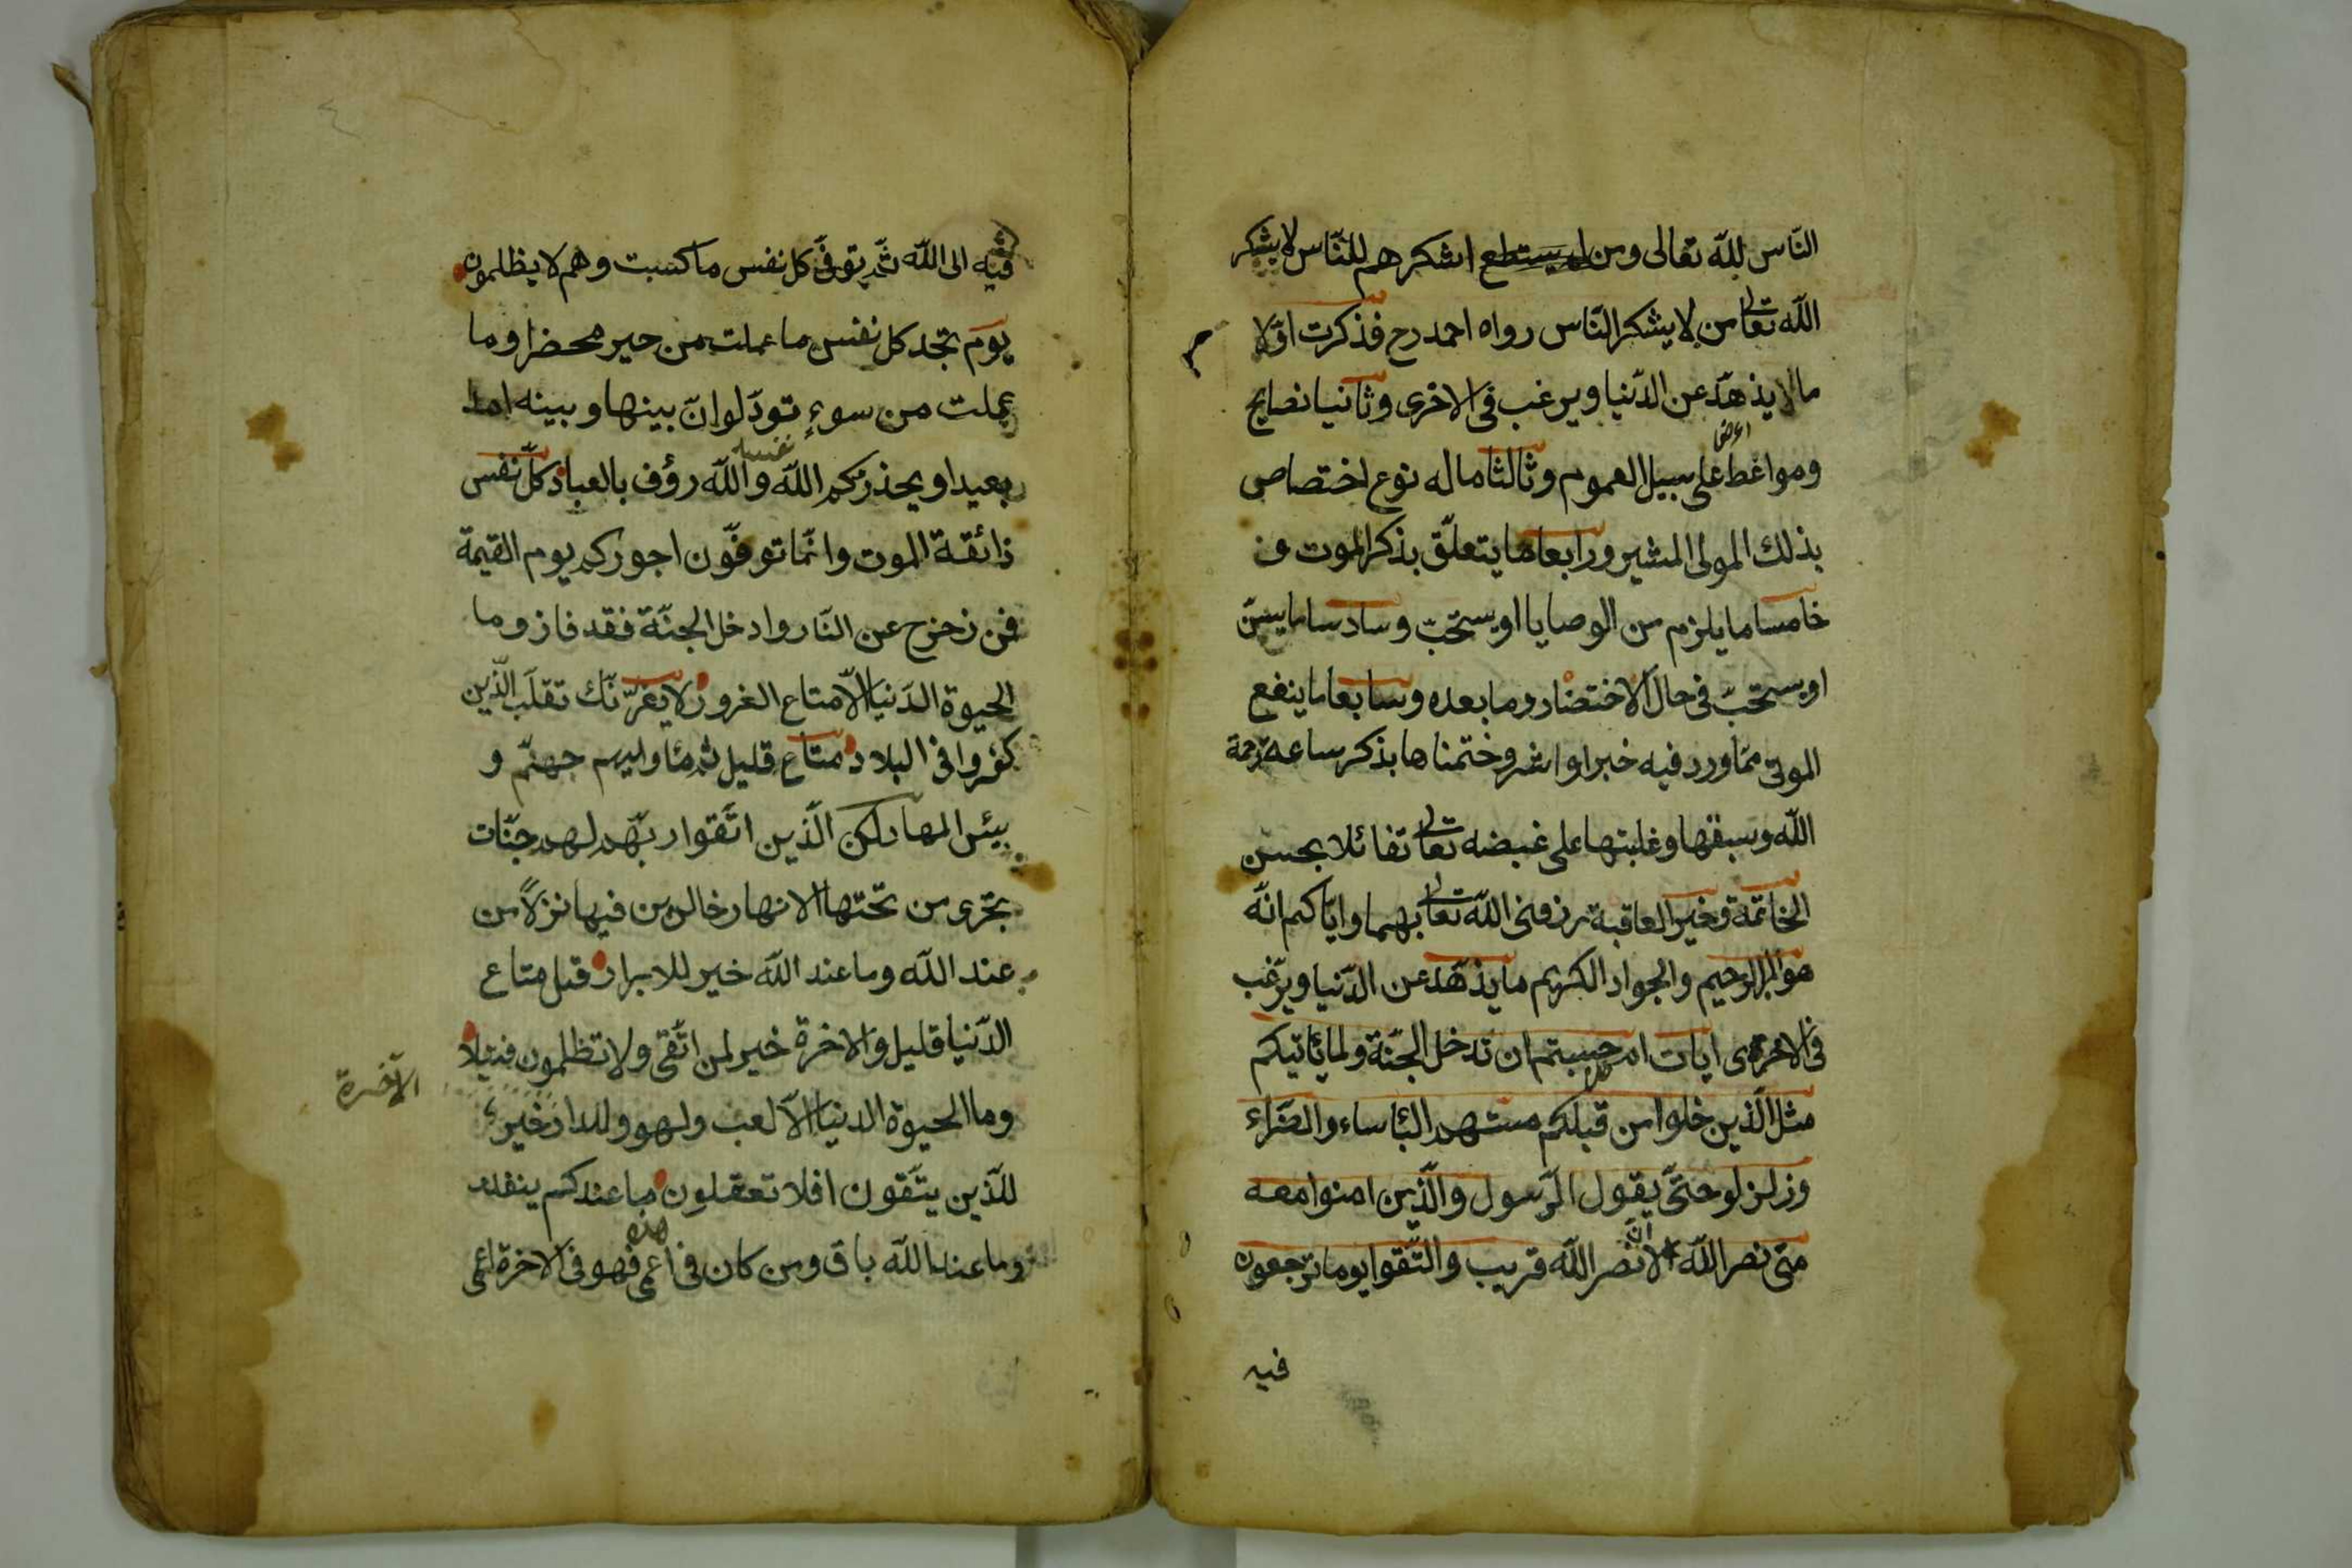 الناس لله تعالى ومن اشكرهم للناس لا يشكر
الله تعالى من لا يشكر الناس رواه احمد رح فذكرت اوّلا
ما يذهّد عن الدّنيا ويرغب فى الاخرى وثانيا نصايح
ومواعظ على سبيل العموم وثالثا ماله نوع اختصاص
بذلك المولى المشير ورابعا ما يتعلّق بذكر الموت و
خامسا ما يلزم من الوصايا او يستحّب وسادسا ما يسنّ
او يستحّب فى حال الاختضار وما بعده وسابعا ما ينفع
الموتى ممّا ورد فيه خبر او اثر وختمناها بذكر ساعة رحمة
الله وسبقها وغلبتها على غبضه تعالى تفائلا بحسن
الخاتمة وخير العاقبة رزقنى الله تعالى بهما وايّاكم انّه
هو البر الرحيم والجواد الكريم ما يذهّد عن الدّنيا ويرّغب
فى الاخرى ايات ام حسبتم ان تدخل الجنّة ولما يأتيكم
مثل الّذين خلوا من قبلكم مستهم البأساء والضرّاء
وزلزلو حتّى يقول الرّسول والّذين امنوا معه
متى نصر الله الا انّ نصر الله قريب والتّقوا يوما ترجعون
فيه
فيه الى الله ثمّ توفّى كل نفس ما كسبت وهم لا يظلمون
يوم تجد كل نفس ما عملت من خير محضرا وما
عملت من سوءٍ تودّ لو انّ بينها وبينه امدا
بعيدا ويحذركم الله نفسه والله رؤف بالعباد كلّ نفس
ذائقة الموت وانّما توفّون اجوركم يوم القيمة
فمن زحزح عن النّار وادخل الجنّة فقد فاز وما
الحيوة الدّنيا الّا متاع الغرور لا يغرّنّك تقلّب الّذين
كفروا فى البلاد متاع قليل ثم مأواهم جهنّم و
بيئس المهاد لكن الّذين اتّقوا ربّهم لهم جنّات
تجرى من تحتها الانهار خالدين فيها نزلاً من
عند الله وما عند الله خير للابرار قل متاع
الدّنيا قليل والاخرة خير لمن اتّقى ولا تظلمون فتيلا
وما الحيوة الدنيا الّا لعب ولهو وللدار خير
الآخرة
للّذين يتّقون افلا تعقلون ما عندكم ينفد
وما عند الله باق ومن كان فى هذه اعمى فهو فى الاخرة اعمى